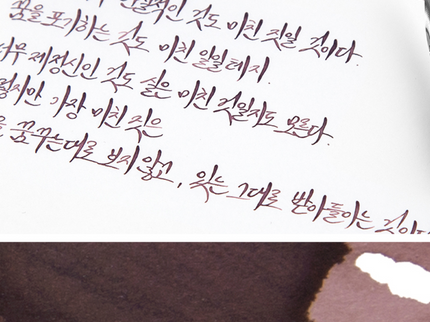 것도 미친 짓일 것이다.
꿈을 포기하는 것도 미친 일일테지.
너무 제정신인 것도 실은 미친 것일지도 모른다.
가장 미친 짓은
꿈꾸는대로 보지 않고, 있는 그대로 받아들이는